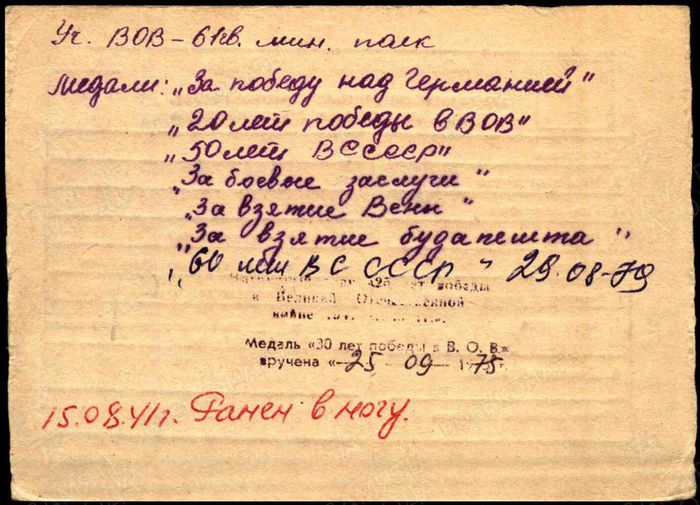 Уч. ВОВ – 61кв. мин. полк
Медали: „За победу над Германией"
„20 лет победы в ВОВ"
„50 лет ВС СССР"
„За боевые заслуги"
„За взятие Вены"
„За взятие будапешта"
„60 лет ВС СССР" 29.08-79
лет победы
в Великой Отечественной
войне
Медаль «30 лет победы в В. О. В»
вручена «25 09 1975г.
15.08.41г. Ранен в ногу.